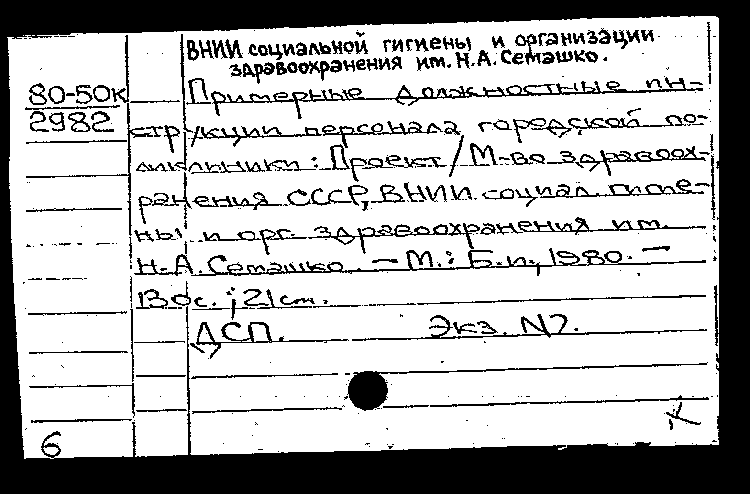 ВНИИ социальной гигиены и организации
здравоохранения им. Н.А. Семашко.
80-50к
2982
Примерные должностные ин-
струкции персонала городской по-
ликлиники: Проект / М-во здравоох-
ранения СССР, ВНИИ социал. гигие-
ны и орг. здравоохранения им.
Н.А. Семашко. — М.: Б.и., 1980. —
130с.; 21см.
ДСП. Экз. N2.
К
6